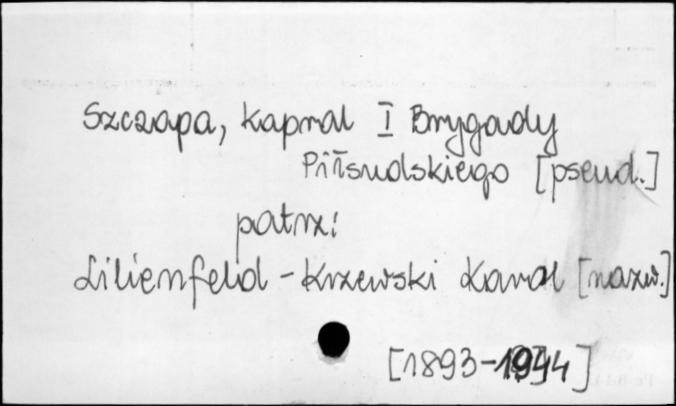 Szczapa, kapral I Brygady
Piłsudskiego [pseud.]
patrz:
Lilienfeld-Krzewski Karol [nazw.]
[1893-1944]